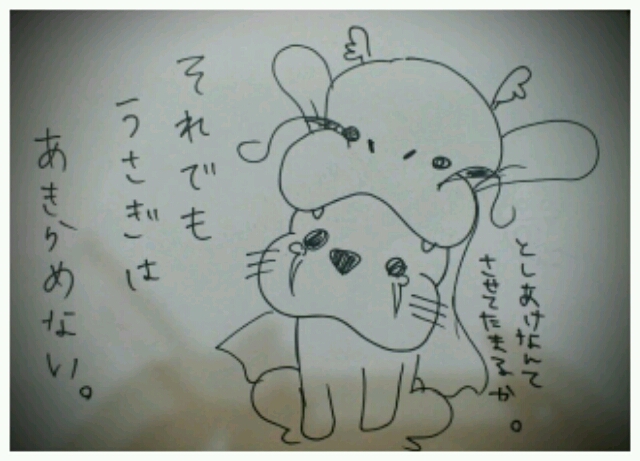 それでも
うさぎは
あきらめない。
としあけなんて
させてたまるか。